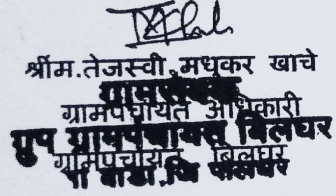 श्रीम.तेजस्वी मधुकर खाचे
ग्रामसेवक
ग्रामपंचायत अधिकारी
ग्रुप ग्रामपंचायत बिलघर
ग्रामपंचायत बिलघर
ता वाडा.जि पालघर